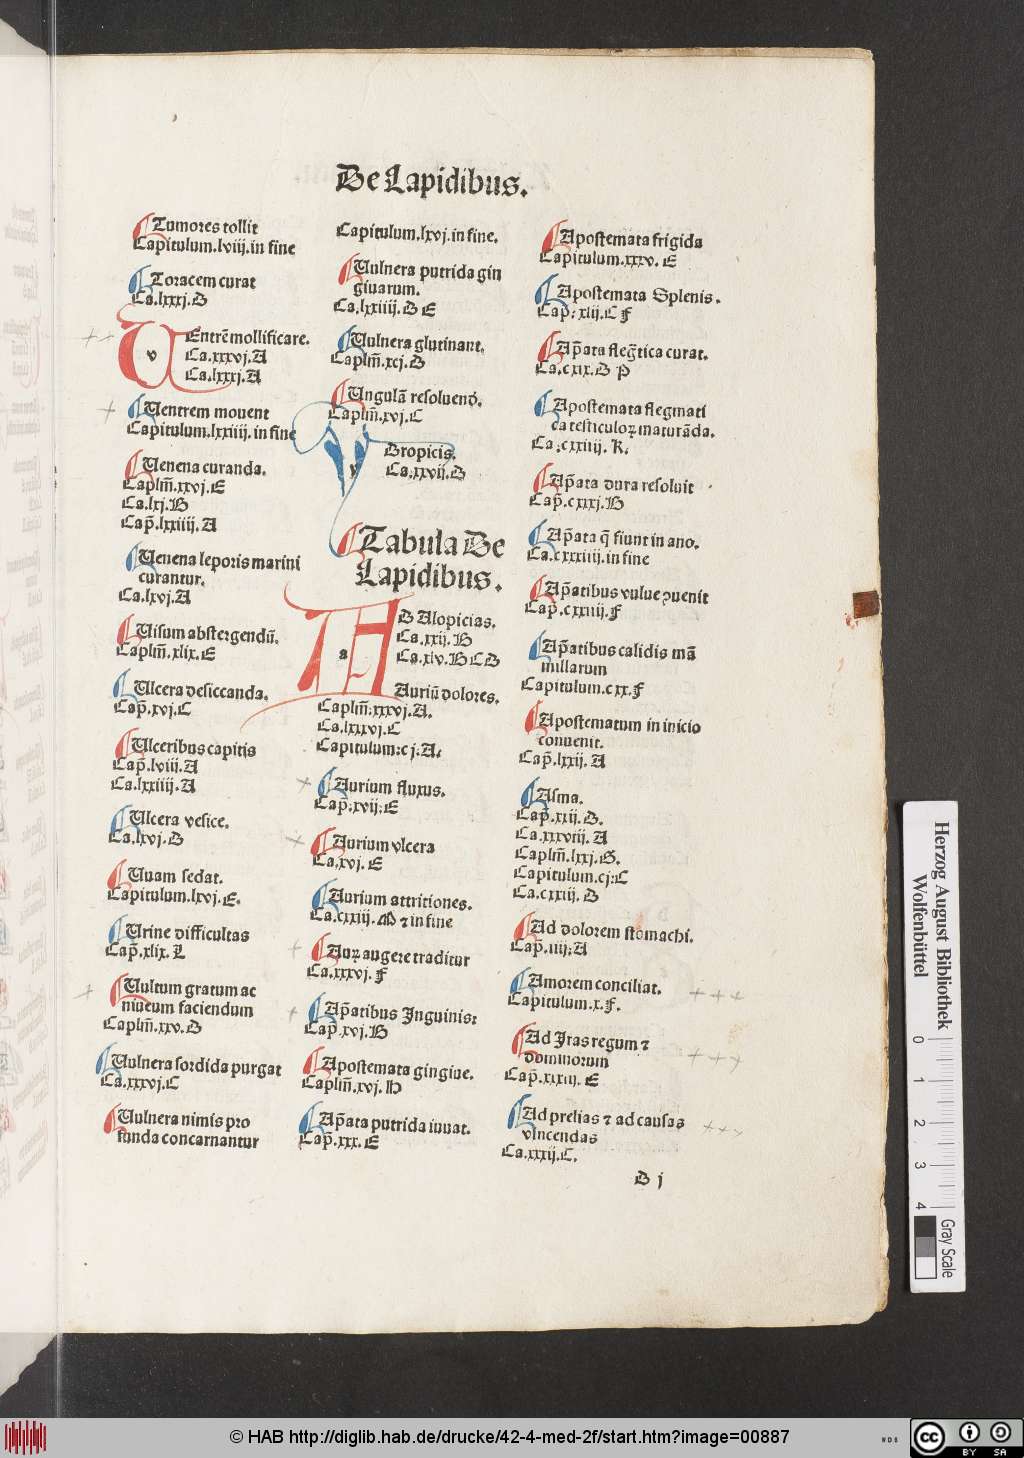 De Lapidibus.
Tumores tollit
Capitulum.lviij.in fine
Toracem curat
Ca.lxxxj.D
v
Entrē mollificare.
Ca.xxxvj.A
Ca.lxxxj.A
Uentrem mouent
Capitulum.lxxiiij.in fine
Uenena curanda.
Caplm̄.xxvj.E
Ca.lxj.B
Cap̄.lxxiiij.A
Uenena leporis marini
curantur.
Ca.lxvj.A
Uisum abstergendū.
Caplm̄.xlix.E
Ulcera desiccanda.
Cap̄.xvj.C
Ulceribus capitis
Cap̄.lviii.A
Ca.lxxiiij.A
Ulcera vesice.
Ca.lxvj.D
Uuam sedat.
Capitulum.lxvj.E.
Urine difficultas
Cap̄.xlix.L
Uultum gratum ac
niueum faciendum
Caplm̄.xxv.D
Uulnera sordida purgat
Ca.xxxvj.C
Uulnera nimis pro
funda concarnantur
Capitulum.lxvj.in fine.
Uulnera putrida gin
giuarum.
Ca.lxxiiij.D E
Uulnera glutinant.
Caplm̄.xcj.D
Ungulā resoluend.
Caplm̄.xvj.C
y
Dropicis.
Ca.xxvij.D
Tabula De
Lapidibus.
a
D Alopicias.
Ca.xxij.B
Ca.xlv.B C D
Auriū dolores.
Caplm̄.xxxvj.A.
Ca.lxxxvj.C
Capitulum:cj.A.
Aurium fluxus.
Cap̄.xvij.E
Aurium vlcera
Ca.xvj.E
Aurium attritiones.
Ca.cxxiij.M ⁊ in fine
Auꝝ augere traditur
Ca.xxxvj.F
Ap̄atibus Inguinis:
Cap̄.xvj.B
Apostemata gingiue.
Caplm̄.xvj.H
Ap̄ata putrida iuuat.
Cap̄.xxx.E
Apostemata frigida
Capitulum.xxxv.E
Apostemata Splenis.
Cap̄.xlij.C F
Ap̄ata fleḡtica curat.
Ca.cxix.D P
Apostemata flegmati
ca testiculoꝝ maturāda.
Ca.cxxiiij.R.
Ap̄ata dura resoluit
Cap̄.cxxxj.B
Ap̄ata q̄ fiunt in ano.
Ca.cxxxiiij.in fine
Ap̄atibus vulue ꝯuenit
Cap̄.cxxiiij.F
Ap̄atibus calidis mā
millarum
Capitulum.cxx.F
Apostematum in inicio
conuenit.
Cap̄.lxxij.A
Asma.
Cap̄.xxij.D.
Ca.xxxviij.A
Caplm̄.lxxj.G.
Capitulum.cj:C
Ca.cxxiij.D
Ad dolorem stomachi.
Cap̄.iiij:A
Amorem conciliat.
Capitulum.x.F.
Ad Iras regum ⁊
dominorum
Ad prelias ⁊ ad causas
vincendas
Ca.xxxij.C.
B j
Herzog August Bibliothek
Wolfenbüttel
0 1 2 3 4
Gray Scale
© HAB http://diglib.hab.de/drucke/42-4-med-2f/start.htm?image=00887
WDB
cc
BY SA